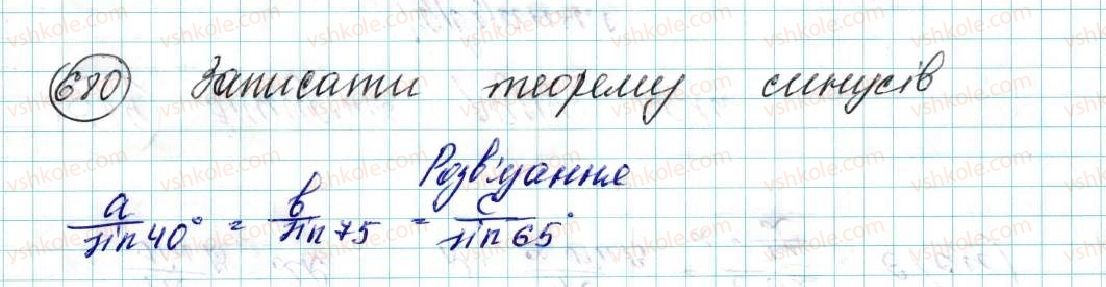 680 Записати теорему синусів
Розв'язання
a/sin 40° = b/sin 75 = c/sin 65°